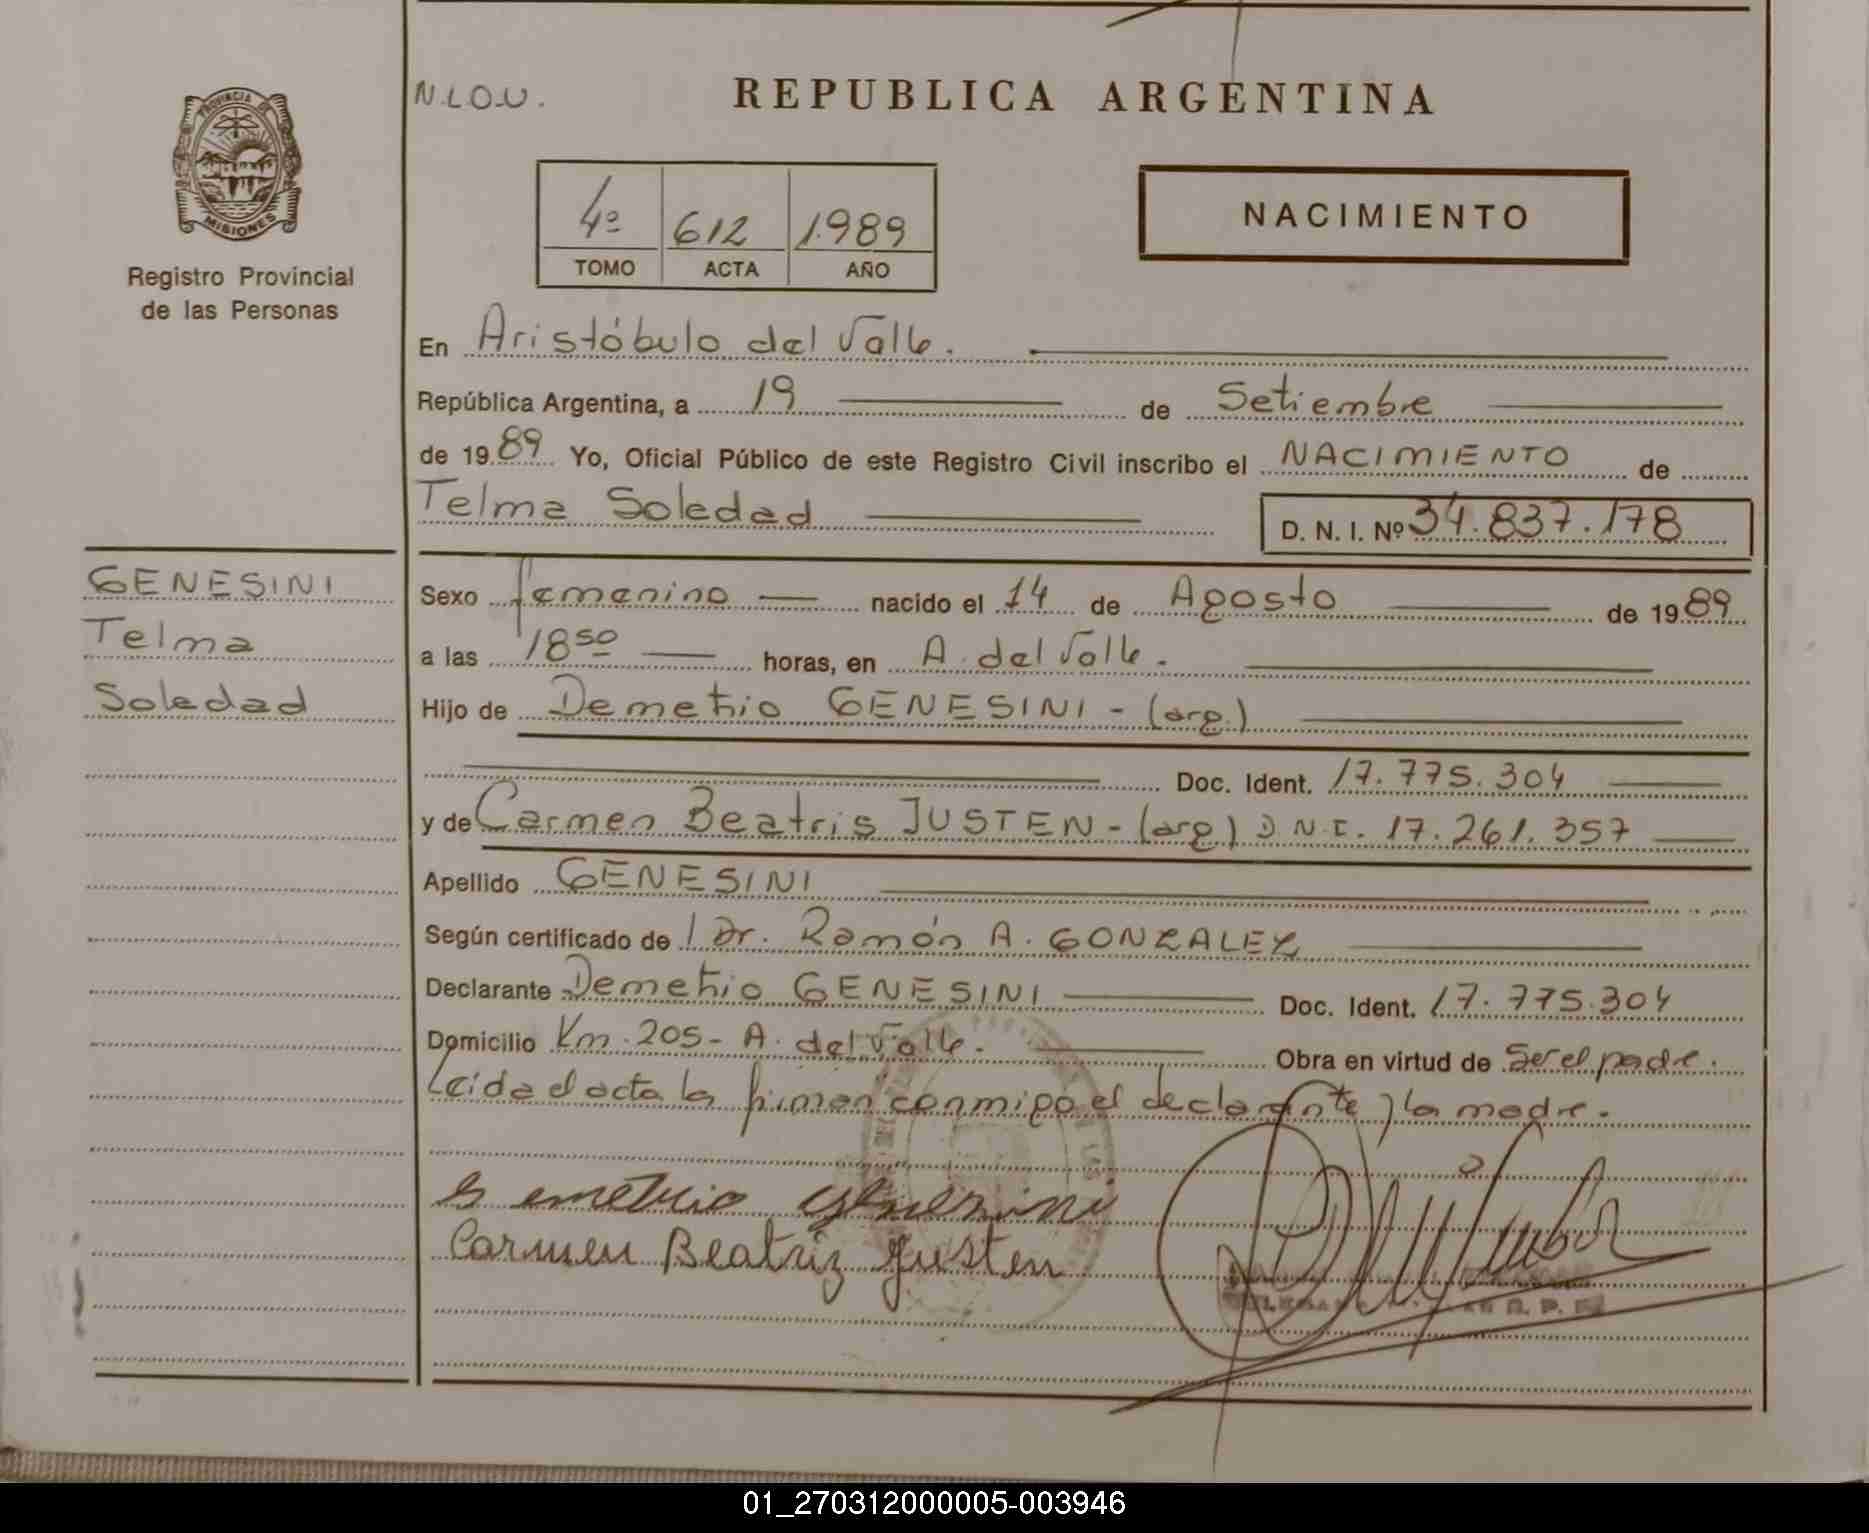 PROVINCIA DE
MISIONES
Registro Provincial
de las Personas
GENESINI
Telma
Soledad
N.L.O.U.
REPUBLICA ARGENTINA
4º 612 1989
TOMO ACTA AÑO
NACIMIENTO
En Aristóbulo del Valle.
República Argentina, a 19 de Setiembre
de 1989 Yo, Oficial Público de este Registro Civil inscribo el NACIMIENTO de
Telma Soledad D. N. I. Nº 34.837.178
Sexo femenino nacido el 14 de Agosto de 1989
a las 18 50 horas, en A. del Valle.
Hijo de Demetrio GENESINI - (arg.)
Doc. Ident. 17.775.304
y de Carmen Beatris JUSTEN - (arg) D.N.I. 17.261.357
Apellido GENESINI
Según certificado de l Dr. Ramón A. GONZALEZ
Declarante Demetrio GENESINI Doc. Ident. 17.775.304
Domicilio Km. 205 - A. del Valle. Obra en virtud de Ser el padre.
Leida el acta la firman conmigo el declarante y la madre.
Demetrio Genesini
Carmen Beatriz Justen
R. P. P.
01_270312000005-003946